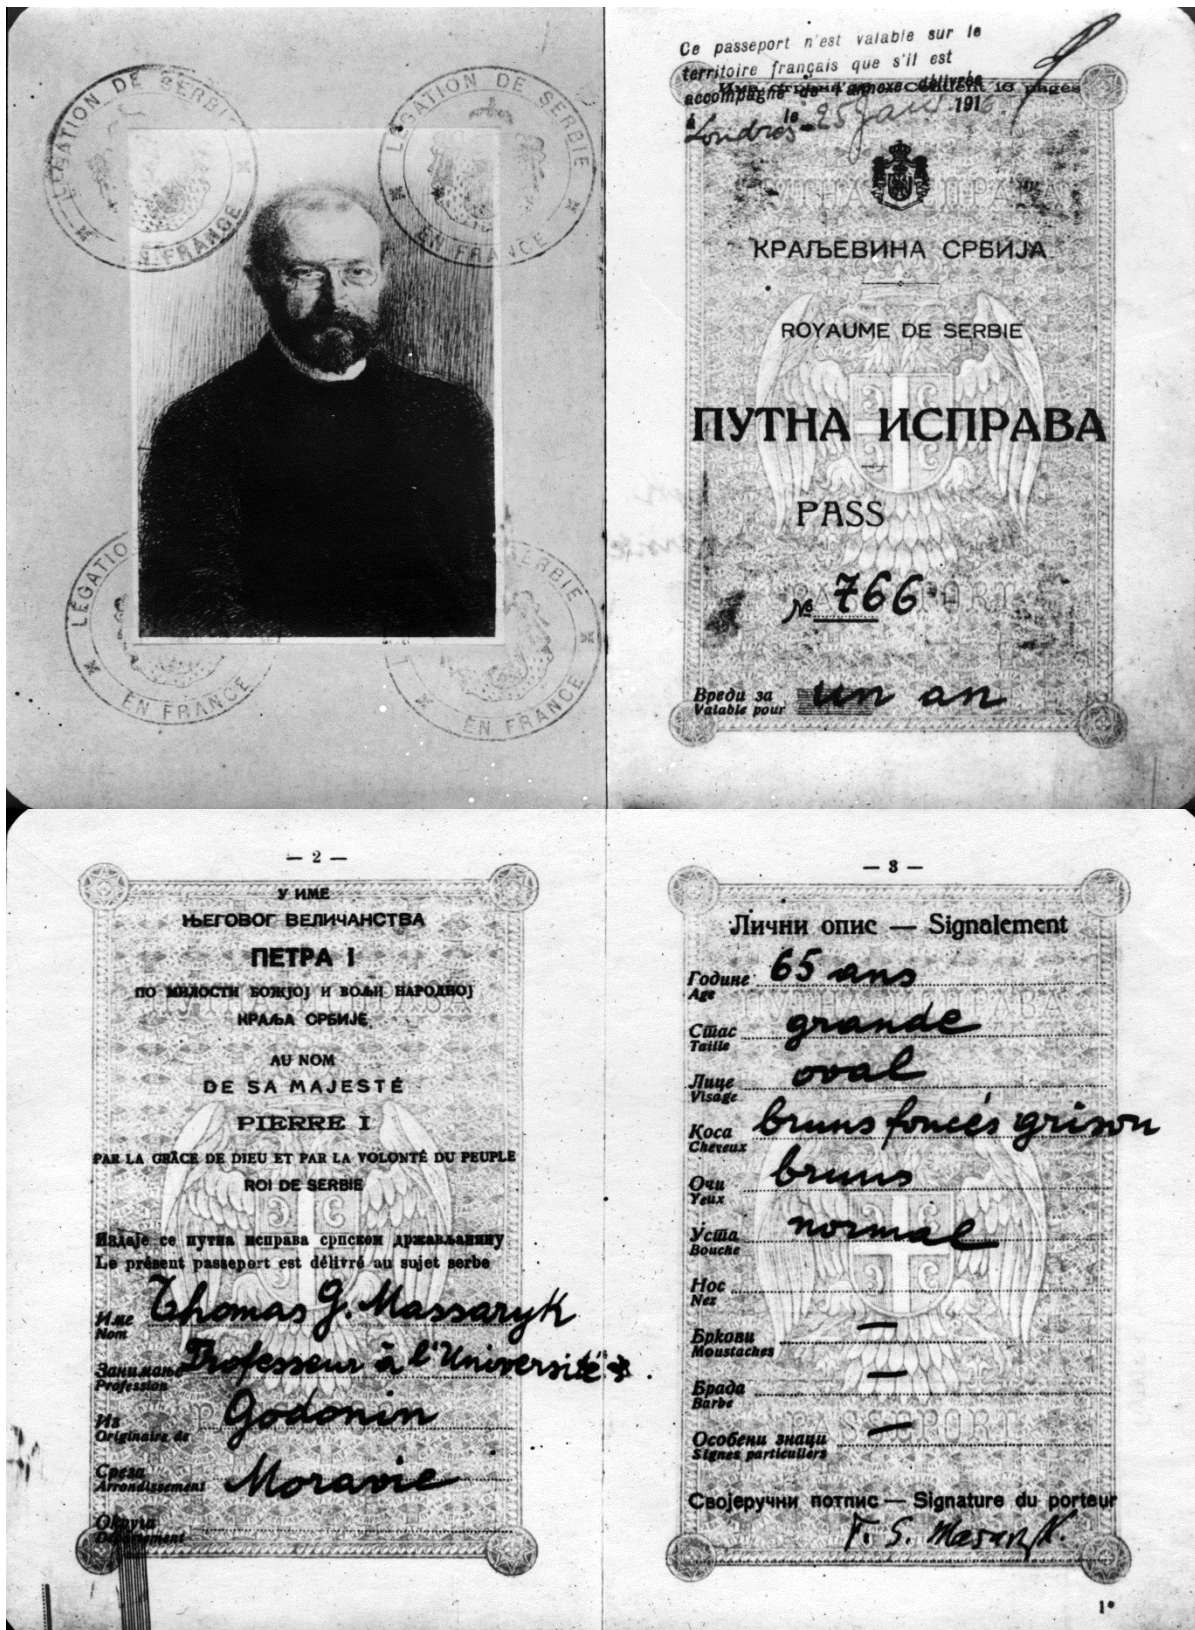 LÉGATION DE SERBIE
EN FRANCE
LÉGATION DE SERBIE
EN FRANCE
LÉGATIO
EN FRANCE
SERBIE
EN FRANCE
Ce passeport n'est valable sur le
territoire français que s'il est
accompagné de l'annexe délivrée
contient 16 pages
à Londres le 25 Janv 191
КРАЉЕВИНА СРБИЈА
ROYAUME DE SERBIE
ПУТНА ИСПРАВА
PASS
№ 766
Вреди за
Valable pour un an
— 2 —
У ИМЕ
ЊЕГОВОГ ВЕЛИЧАНСТВА
ПЕТРА I
ПО МИЛОСТИ БОЖЈОЈ И ВОЉИ НАРОДНОЈ
КРАЉА СРБИЈЕ
AU NOM
DE SA MAJESTÉ
PIERRE I
PAR LA GRÂCE DE DIEU ET PAR LA VOLONTÉ DU PEUPLE
ROI DE SERBIE
Издаје се путна исправа српском држављанину
Le présent passeport est délivré au sujet serbe
Име Thomas G. Massaryk
Nom
Занимање Professeur à l'Université
Profession
Из Godonin
Originaire de
Среза Moravie
Arrondissement
Округа
Département
— 3 —
Лични опис — Signalement
Године 65 ans
Age
Стас grande
Taille
Лице oval
Visage
Коса bruns foncés grison
Cheveux
Очи bruns
Yeux
Уста normal
Bouche
Нос
Nez
Бркови —
Moustaches
Брада —
Barbe
Особени знаци —
Signes particuliers
Својеручни потпис — Signature du porteur
T. G. Masaryk.
1*